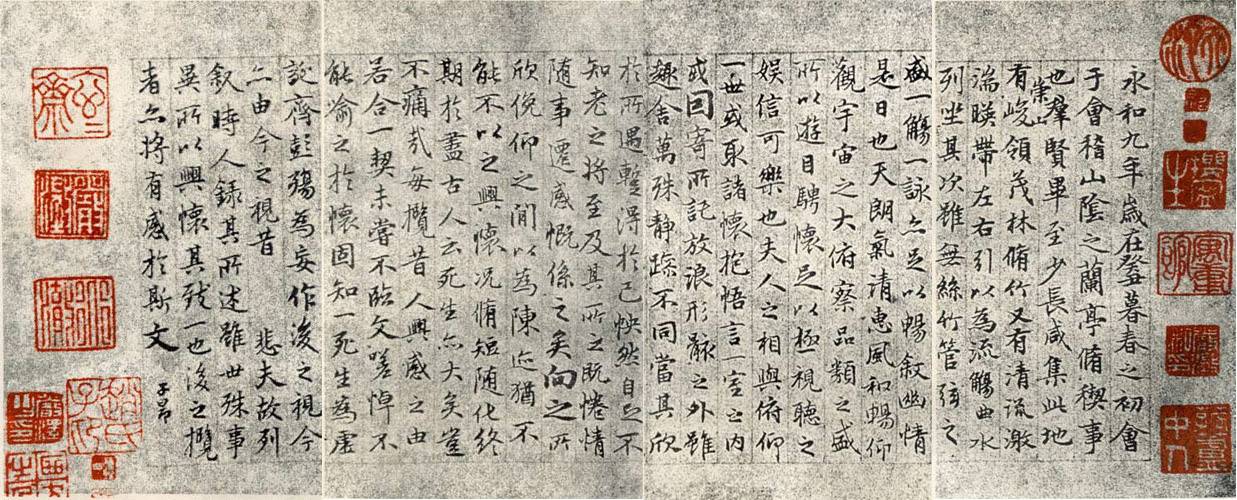 永和九年歲在癸丑暮春之初會
于會稽山陰之蘭亭脩稧事
也羣賢畢至少長咸集此地
有崇山峻領茂林脩竹又有清流激
湍暎帶左右引以為流觴曲水
列坐其次雖無絲竹管弦之
盛一觴一詠亦足以暢敘幽情
是日也天朗氣清惠風和暢仰
觀宇宙之大俯察品類之盛
所以遊目騁懷足以極視聽之
娛信可樂也夫人之相與俯仰
一世或取諸懷抱悟言一室之內
或因寄所託放浪形骸之外雖
趣舍萬殊静躁不同當其欣
於所遇蹔得於己怏然自足不
知老之將至及其所之既惓情
隨事遷感慨係之矣向之所
欣俛仰之間以為陳迹猶不
能不以之興懷況脩短隨化終
期於盡古人云死生亦大矣豈
不痛哉每攬昔人興感之由
若合一契未嘗不臨文嗟悼不
能喻之於懷固知一死生為虛
誕齊彭殤為妄作後之視今
亦由今之視昔 悲夫故列
敘時人錄其所述雖世殊事
異所以興懷其致一也後之攬
者亦將有感於斯文
子昂
趙氏子昂